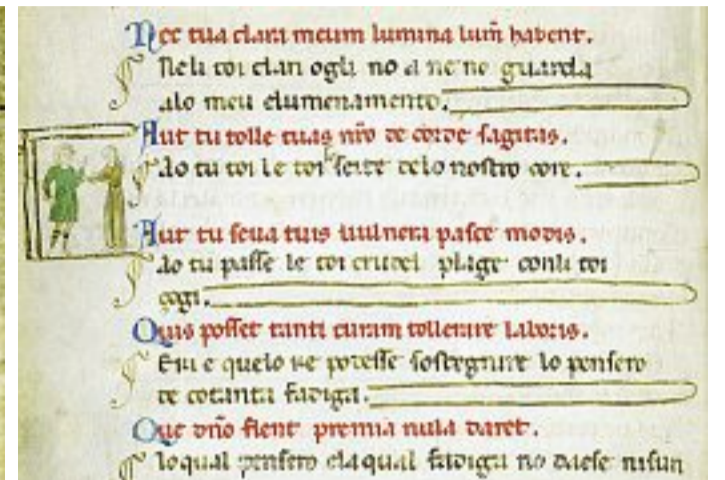 Nec tua clara meum lumina lum̄ habent.
Neli toi clari ogli no a ne no guarda
alo meu alumenamento.
Aut tu tolle tuas nr̄o de corde sagitas.
Ao tu toi le toi seite delo nostro core.
Aut tu seua tuis uulnera pasce modis.
Ao tu passe le toi crudel plage conli toi
Quis posset tanti curam tollerare laboris.
Eni e quelo ke potesse sostegnire lo pensero
de cotanta fadiga.
Que dn̄o flent premia nula daret.
loqual pensero elaqual fadiga no daese nisun